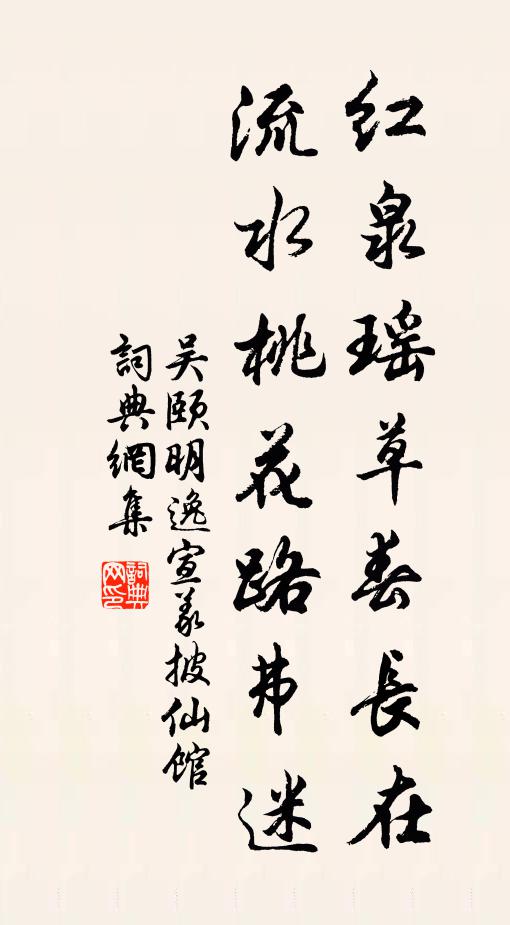 红泉瑶草春長在
流水桃花路弗迷
吴颐明逸宣义披仙馆
詞典網集
詞典
网印